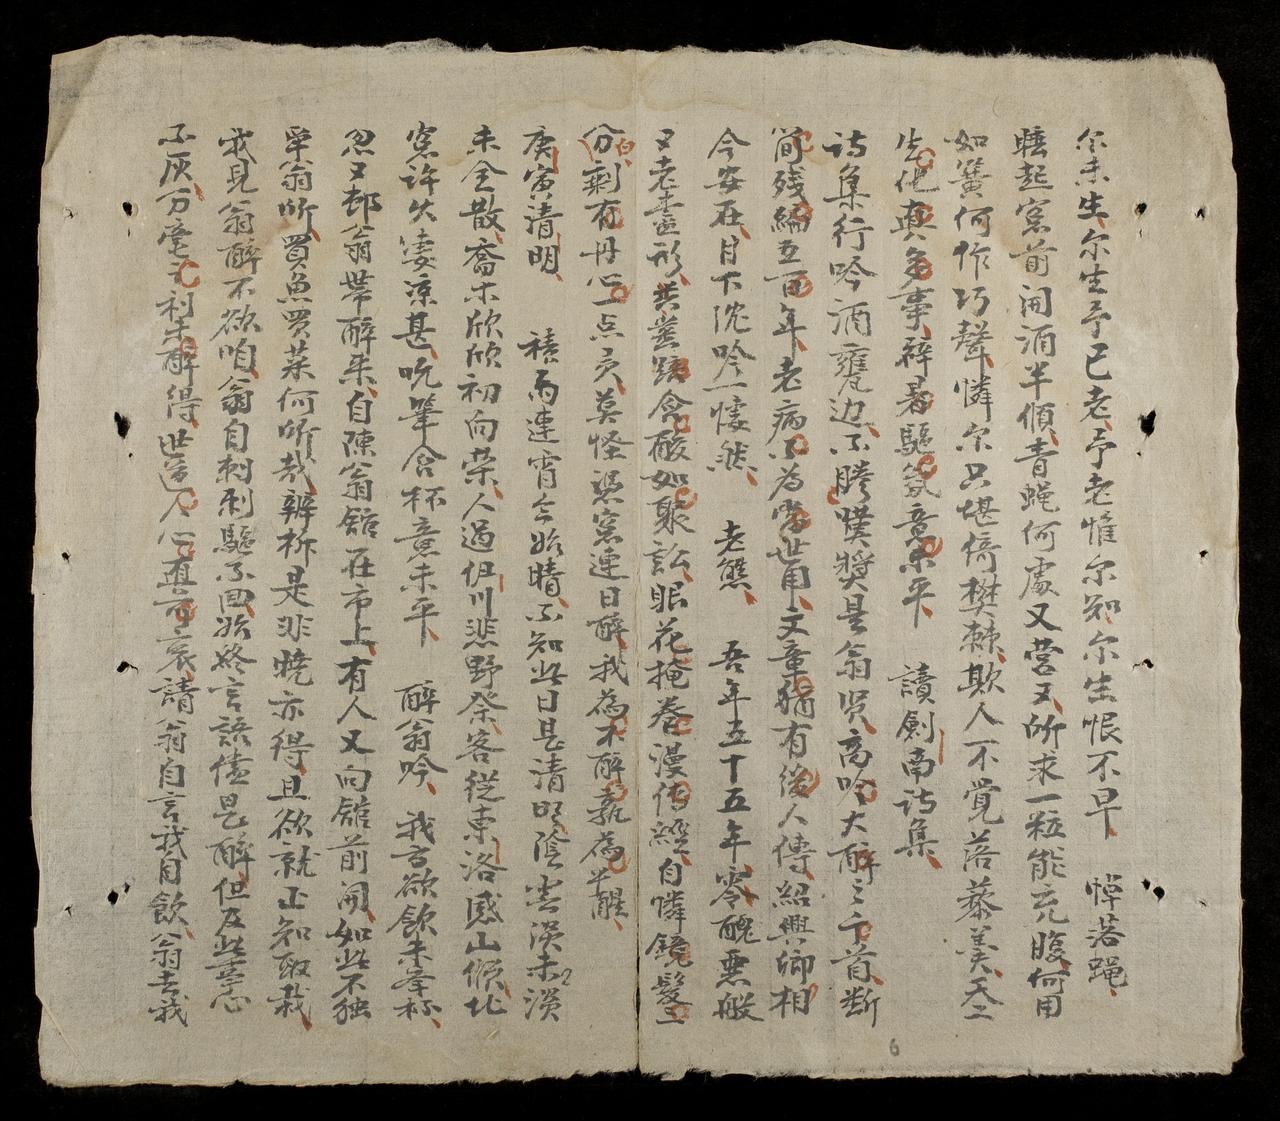 尔未生、尔生予已老、予老惟尔知、尔生恨不早、 悼落蝇、
睡起窓前闲酒半傾、青蝇何處又营又、所求一粒能充腹、何用
如簧何作巧聲、憐尔只堪倚樊棘、欺人不覺落蔡羡、天工
生化真多事、辞暑驅氛意未平、 讀劍南诗集、
诗集行吟酒甕边、不勝嘆奬是翁贤、高吟大醉三千首、断
简残編五百年、老病不為當世用、文章猶有後人傳、紹興卿相
今安在、月下沈吟一悽然、 老態、 吾年五十五年零、醜悪般
又老畫形、共 含酸如聚訟、眼花掩卷漫傳經、自憐鏡髮二
分白、剩有丹心一点灵、莫怪 窓連日醉、我為不醉孰為醒、
庚寅清明、 積雨連宵今始晴、不知此日是清明、陰雲淡淡
未全散、喬木欣欣初向荣、人過伊川悲野祭、客從東洛感山傾、北
窓许久凄凉甚、吮筆含杯意未平、 醉翁吟、 我方欲飲未举杯、
忽又都翁带醉来、自陳翁舘在市上、有人又向舘前開、如此不独
举翁所買魚買菜何所哉、辨柳是非晓亦得、且欲就止知取栽、
我見翁醉不欲咱、翁自刺刺驅不回、始終言語儘是醉、但及此事心
不灰、万毫毛利未醉得、世道人心真可哀、請翁自言我自飲、翁去我
6